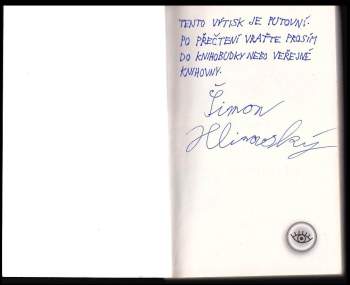 TENTO VÝTISK JE PUTOVNÍ.
PO PŘEČTENÍ VRAŤTE PROSÍM
DO KNIHOBUDKY NEBO VEŘEJNÉ
KNIHOVNY.
Šimon
Hlinovský